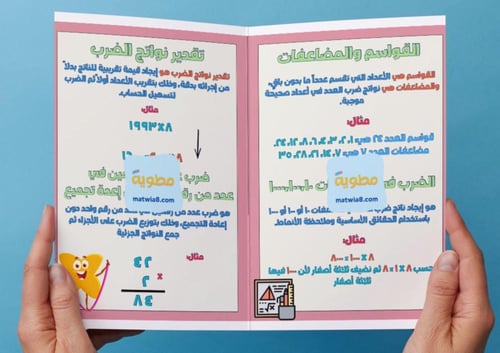 القواسم والمضاعفات
القواسم هي الأعداد التي تقسم عدداً ما بدون باقٍ،
والمضاعفات هي نواتج ضرب العدد في أعداد صحيحة
موجبة.
مثال:
قواسم العدد ٢٤ هي ١، ٢، ٣، ٤، ٦، ٨، ١٢، ٢٤.
مضاعفات العدد ٧ هي ٧، ١٤، ٢١، ٢٨، ٣٥
مطوية
matwia8.com
الضرب في
هو إيجاد ناتج ضرب
١٠ أو ١٠٠ أو ١٠٠٠
باستخدام الحقائق الأساسية وملاحظة الأنماط.
مثال:
٨ × ١٠٠٠ = ٨٠٠٠
حسب ٨ × ١ = ٨ ثم نضيف ثلاثة أصفار لأن ١٠٠٠ فيها
ثلاثة أصفار
تقدير نواتج الضرب
تقدير نواتج الضرب هو إيجاد قيمة تقريبية للناتج بدلاً
من إجرائه بدقة، وذلك بتقريب الأعداد أولاً ثم الضرب
لتسهيل الحساب.
مثال:
٨×١٩٩٣
مطوية
matwia8.com
ضرب
في
عدد من
إعادة تجميع
هو ضرب عدد من
من رقم واحد دون
إعادة التجميع، وذلك بتوزيع الضرب على الأجزاء ثم
جمع النواتج الجزئية
مثال:
٤٢
×
٢
٨٤